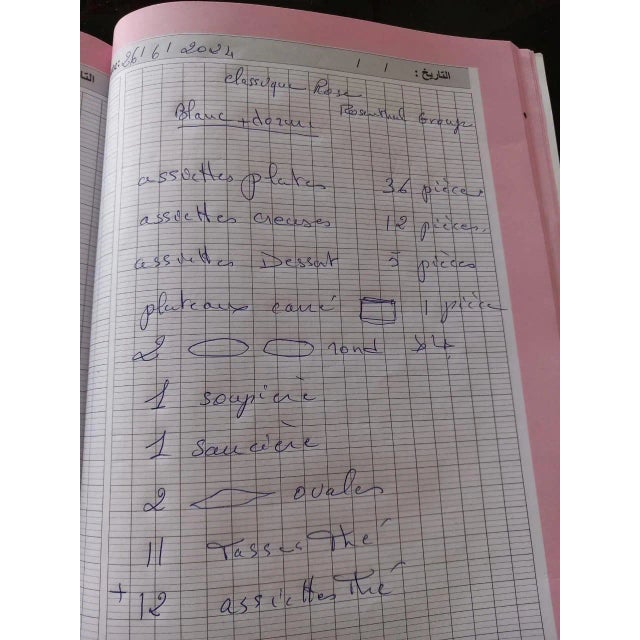 26/6/2024 / / التاريخ :
Classique Rose
Rosenthal Group
Blanc + dorure
assiettes plates 36 pièces
assiettes creuses 12 pièces.
assiettes Dessert 5 pièces
plateaux carré 1 pièce
2 rond
1 soupière
1 saucière
2 ovales
11 Tasses thé
+ 12 assiettes thé